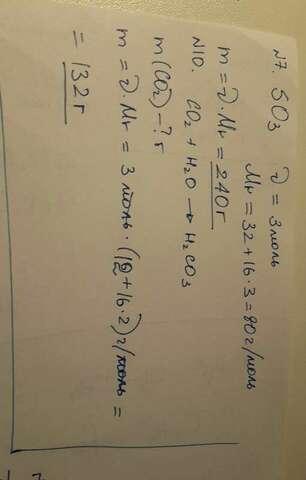 N7. SO3 ν = 3моль
Mr = 32 + 16 · 3 = 80 г/моль
m = ν · Mr = 240 г
N10. CO2 + H2O → H2CO3
m(CO2) – ? г
m = ν · Mr = 3 моль · (12 + 16 · 2) г/моль =
= 132 г